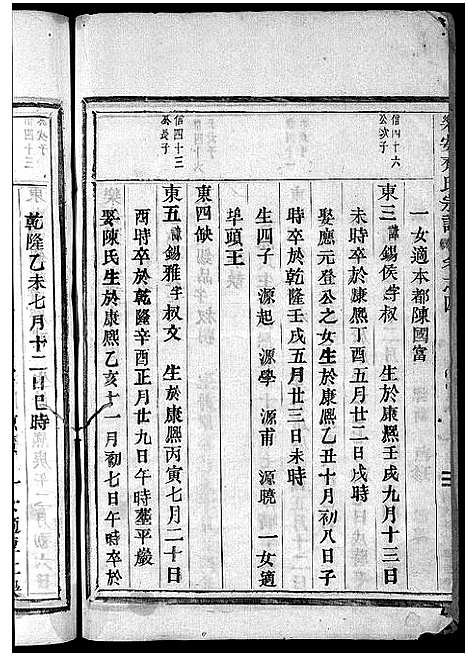 一女適本都陳國富
信四十六
公次子
東三諱錫侯字叔 生於康熙壬戌九月十三日
未時卒於康熙丁酉五月廿二日戌時
娶應元登公之女生於康熙乙丑十月初八日子
時卒於乾隆壬戌五月廿三日未時
生四子 源起 源學 源甫 源曉 一女適
埠頭王
東四缺
信四十三
公長子
東五諱錫雅字叔文 生於康熙丙寅七月二十日
酉時卒於乾隆辛酉正月廿九日午時塟平巖
娶陳氏生於康熙乙亥十一月初七日午時卒於
乾隆乙未七月十二日巳時